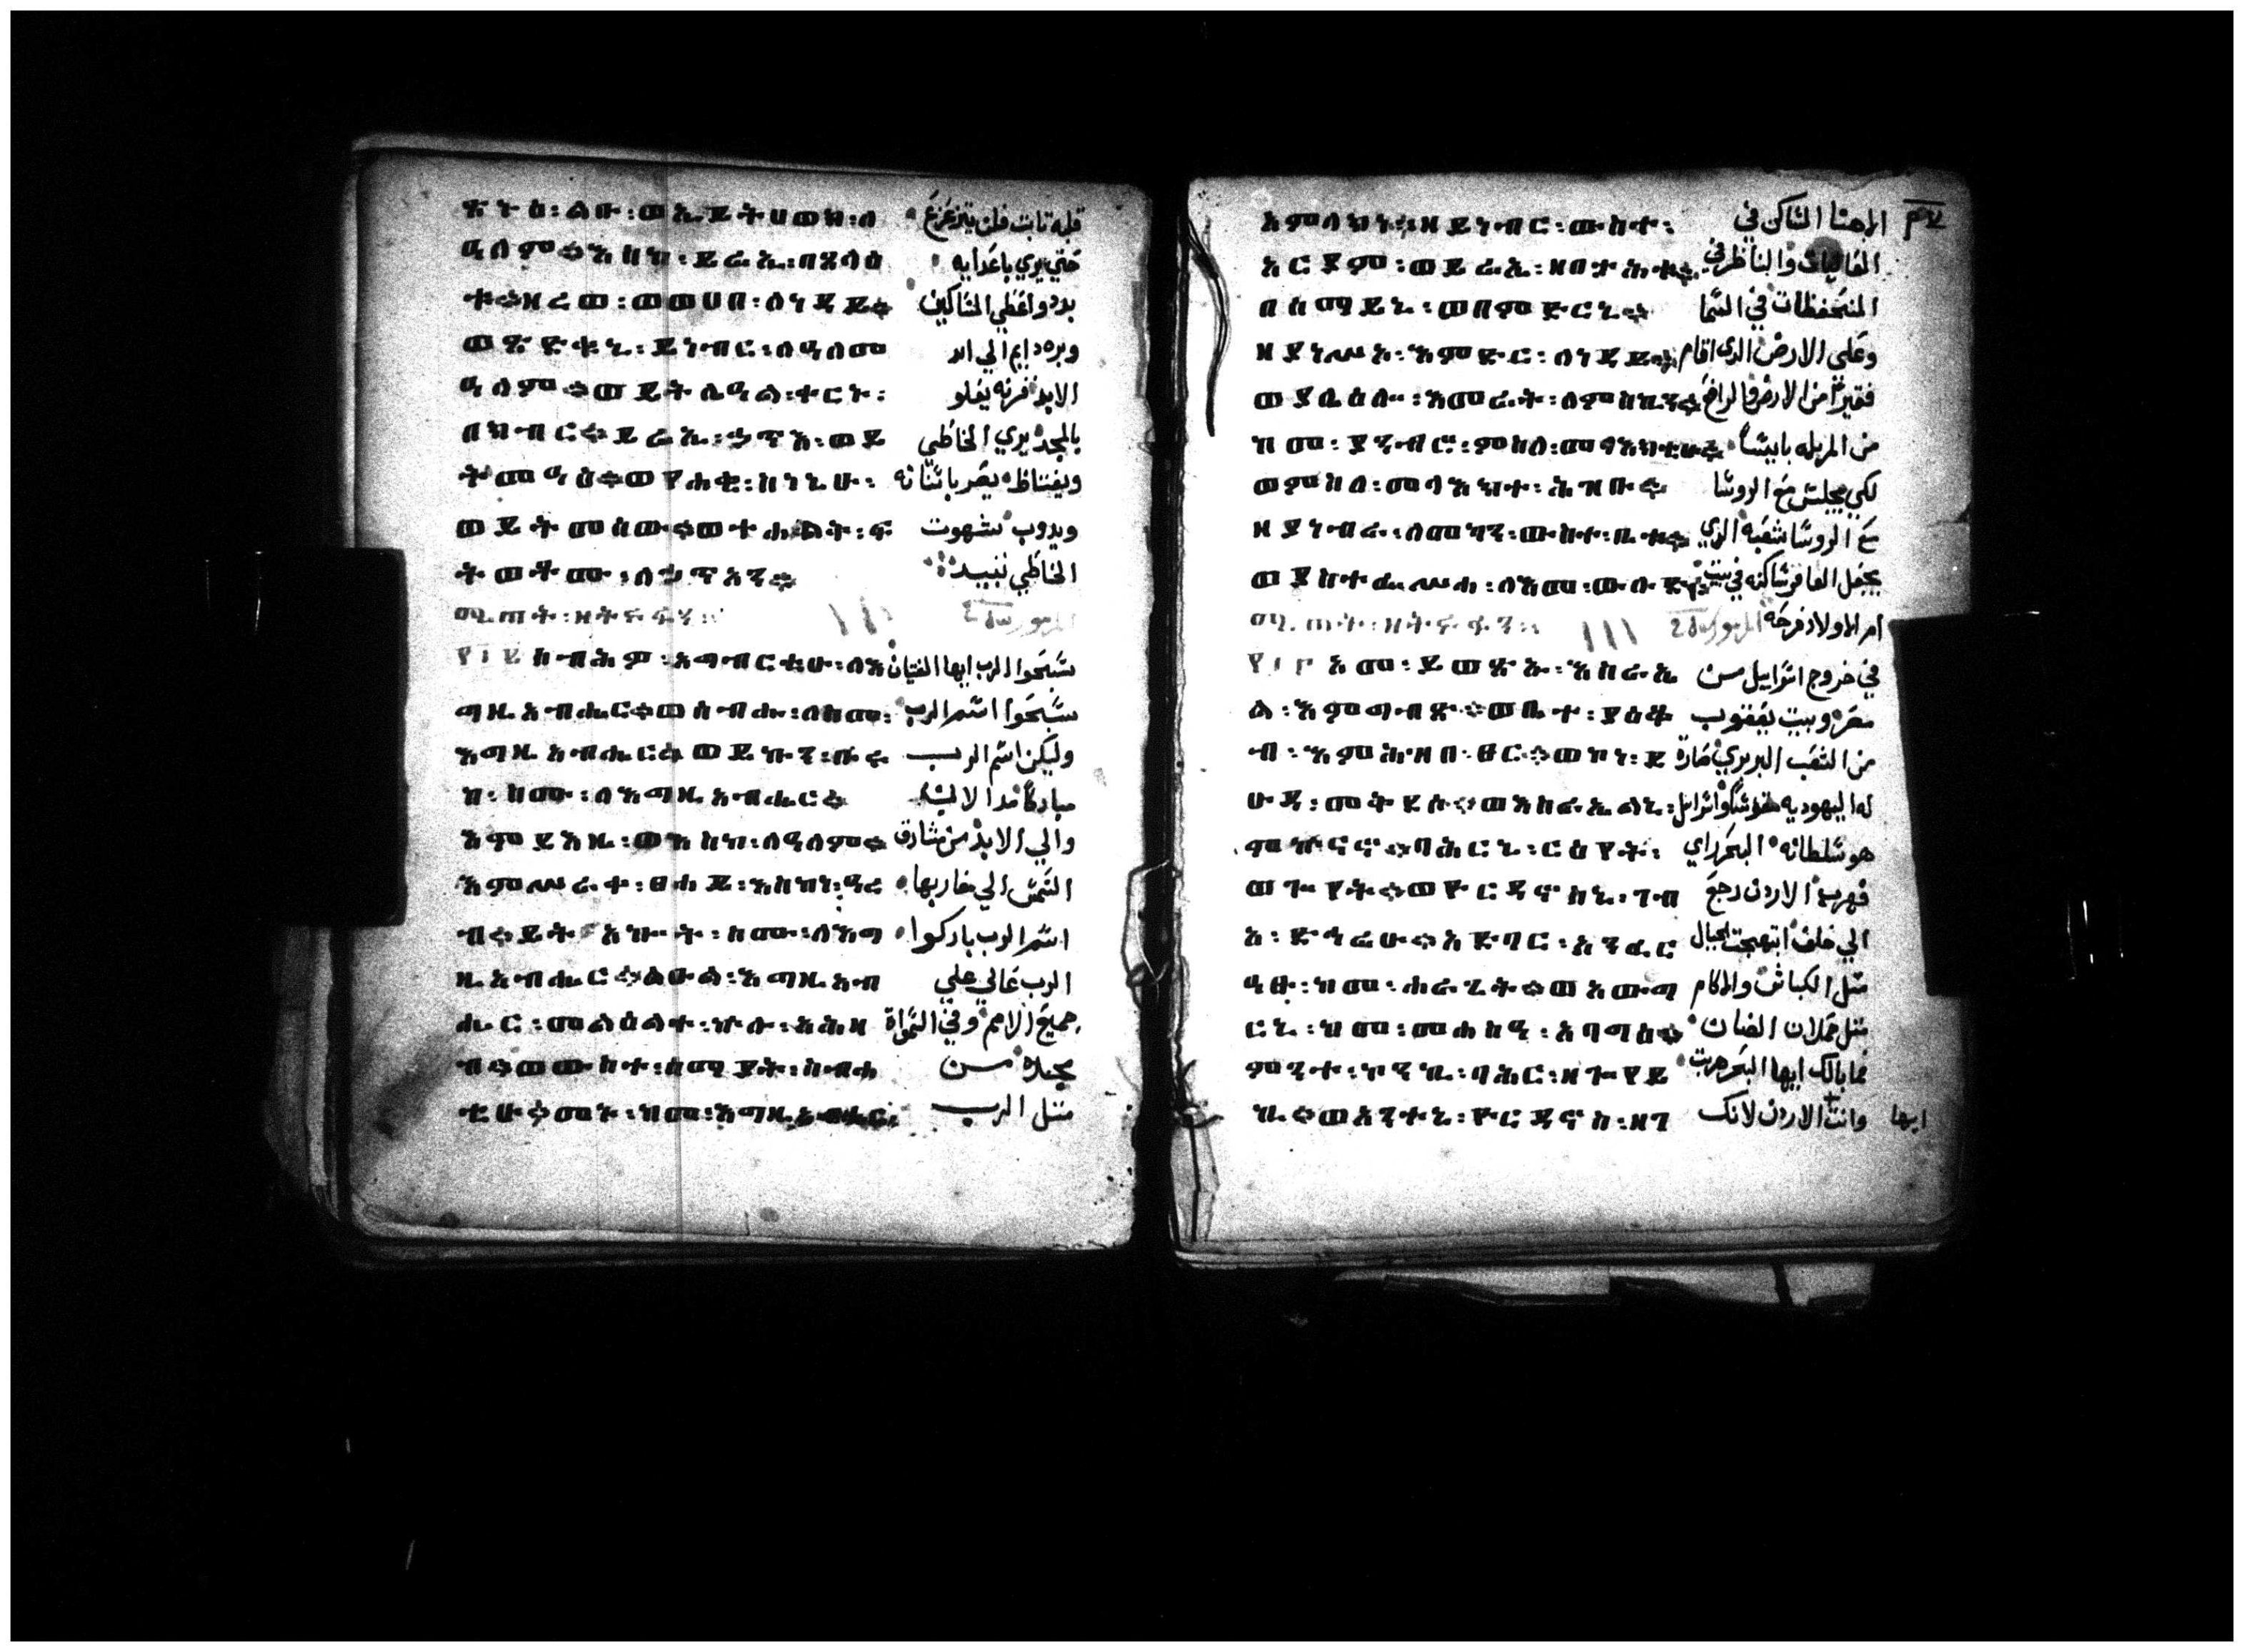 ጽኑዕ፡ልቡ፡ወኢይትሀወክ፡ለ قلبه تابت فلن يتزعزع
ዓለም፨እስከ፡ይሬኢ፡በፀላዕ حتي يري باعدايه
ቱ፨ዘረወ፡ወወሀበ፡ለነዳይ፨ بدد واعطي المساكين
ወጽድቁኒ፡ይነብር፡ለዓለመ وبره دايم الي ابد
ዓለም፨ወይትሌዓል፡ቀርኑ፡ الابد قرنه يعلو
በክብር፨ይሬኢ፡ኃጥእ፡ወይ بالمجد يري الخاطي
ትመዓዕ፨ወየሐቂ፡ስነኒሁ፡ ويغتاظ يصر باسنانه
ወይትመሰው፨ወትሐልቅ፡ፍ ويدوب شهوت
ትወቶሙ፡ለኃጥአን፨ الخاطي تبيد
المزمور
ሰብሕዎ፡እግብርቲሁ፡ለእ سبحوا الرب ايها الفتيان
ግዚአብሔር፨ወሰብሑ፡ለስሙ፡ سبحوا اسم الرب
እግዚአብሔር፨ወይኩን፡ቡሩ وليكن اسم الرب
ከ፡ስሙ፡ለእግዚአብሔር፨ مباركا
እምይእዜ፡ወእስከ፡ለዓለም፨ والي الابد من مشارق
እምሥራቀ፡ፀሐይ፡እስከነ፡ዓረ الشمس الي مغاربها
ብ፨ይትአኰት፡ስሙ፡ለእግ اسم الرب باركوا
ዚአብሔር፨ልዑል፡እግዚአብ الرب عالي علي
ሔር፡መልዕልተ፡ኵሉ፡አሕዛ جميع الامم وفي السمواة
ብ፨ወውስተ፡ሰማያት፡ስብሐ مجده من
ቲሁ፨መኑ፡ከመ፡እግዚአብሔር፡ متل الرب
አምላክነ፡ዘይነብር፡ውስተ፡ الاهنا الساكن في
አርያም፡ወይሬኢ፡ዘበታሕቱ፨ العاليات والناظر في
በሰማይኒ፡ወበምድርኒ፨ المنحفظات في السما
ዘያነሥአ፡እምድር፡ለነዳይ፨ وعلي الارض الدي اقام
ወያሌዕሎ፡እመሬት፡ለምስኪን፨ فقيرا من الارض والرافع
ከመ፡ያንብሮ፡ምስለ፡መላእክቲሁ፨ من المزبله بايسا
ወምስለ፡መላእክተ፡ሕዝቡ፨ لكي يجلس مع الروسا
ዘያነብራ፡ለመካን፡ውስተ፡ቤት፨ مع الروسا شعبه الدي
ወያስተፌሥሐ፡ለእመ፡ውሉድ፨ يجعل العاقر ساكنه في بيت
ام الاولاد فرحه المزمور
አመ፡ይወፅኡ፡እስራኤ في خروج اسراييل من
ል፡እምግብፅ፨ወቤተ፡ያዕቆ مصر وبيت يعقوب
ብ፡እምሕዝበ፡ፀር፨ወኮነ፡ይ من الشعب البربري صارة
ሁዳ፡መቅደሱ፨ወእስራኤልኒ፡ له اليهوديه
ባሕርኒ፡ርእየት፡ هو سلطانه البحر راي
ወጐየት፨ወዮርዳኖስኒ፡ገብ فهرب الاردن رجع
አ፡ድኅሬሁ፨አድባር፡አንፈር الي خلف ابتهجت الجبال
ዓፁ፡ከመ፡ሐራጊት፨ወአውግ متل الكباش والاكام
ርኒ፡ከመ፡መሐስዓ፡አባግዕ፨ متل حملان الضان
ምንተ፡ኮንኪ፡ባሕር፡ዘጐየይ فما بالك ايها البحر هربت
ኪ፨ወአንተኒ፡ዮርዳኖስ፡ዘገ وانت الاردن لانك
ايها